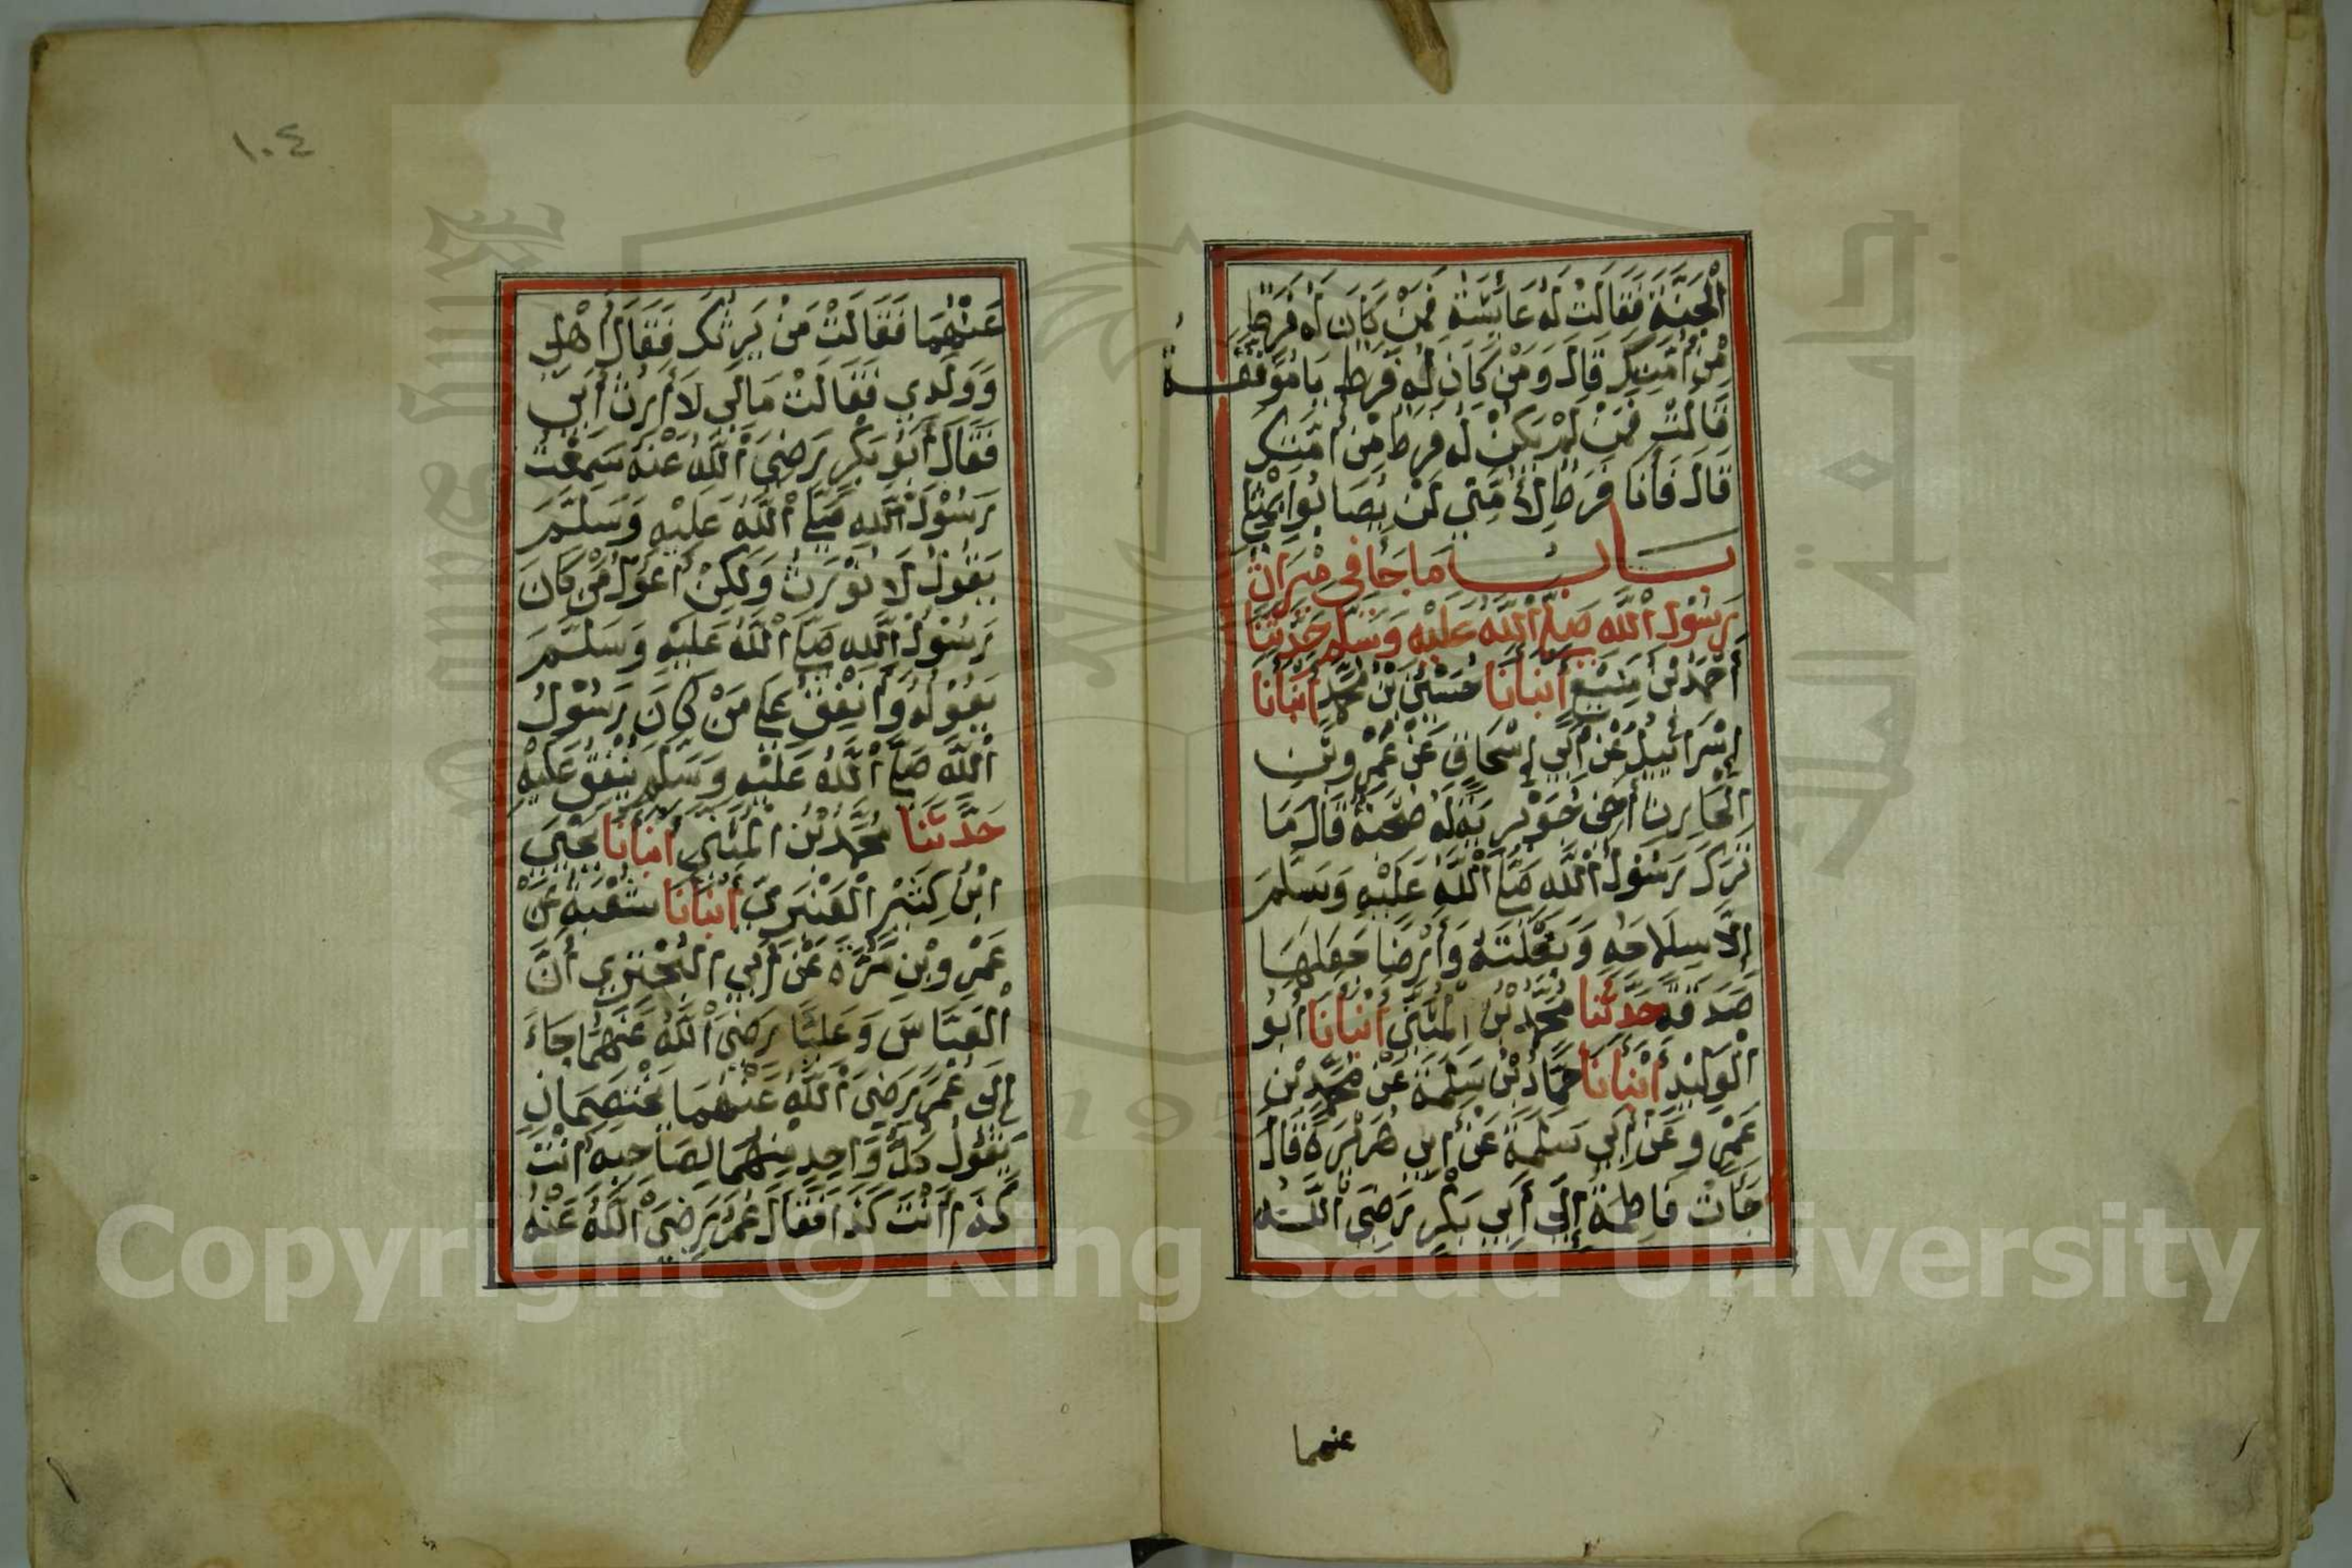 الْجَنَّةَ فَقَالَتْ لَهُ عَائِشَةُ فَمَنْ كَانَ لَهُ فَرَطٌ
مِنْ أُمَّتِكَ قَالَ وَمَنْ كَانَ لَهُ فَرَطٌ يَا مُوَفَّقَةُ
قَالَتْ فَمَنْ لَمْ يَكُنْ لَهُ فَرَطٌ مِنْ أُمَّتِكَ
قَالَ فَأَنَا فَرَطٌ لِأُمَّتِي لَنْ يُصَابُوا بِمِثْلِي
بَابُ مَا جَا فِي مِيْرَاثِ
رَسُوْلِ اللَّهِ صَلَّى اللَّهُ عَلَيْهِ وَسَلَّمَ حَدَّثَنَا
أَحْمَدُ بْنُ مَنِيْعٍ أَنْبَأَنَا حُسَيْنُ بْنُ مُحَمَّدٍ أَنْبَأَنَا
إِسْرَائِيْلُ عَنْ أَبِي إِسْحَاقَ عَنْ عَمْرِو بْنِ
الْحَارِثِ أَخِي جُوَيْرِيَةَ لَهُ صُحْبَةٌ قَالَ مَا
تَرَكَ رَسُوْلُ اللَّهِ صَلَّى اللَّهُ عَلَيْهِ وَسَلَّمَ
إِلَّا سِلَاحَهُ وَبَغْلَتَهُ وَأَرْضًا جَعَلَهَا
صَدَقَةً حَدَّثَنَا مُحَمَّدُ بْنُ الْمُثَنَّى أَنْبَأَنَا أَبُو
الْوَلِيْدِ أَنْبَأَنَا حَمَّادُ بْنُ سَلَمَةَ عَنْ مُحَمَّدِ بْنِ
عَمْرٍو عَنْ أَبِي سَلَمَةَ عَنْ أَبِي هُرَيْرَةَ قَالَ
جَأَتْ فَاطِمَةُ إِلَى أَبِي بَكْرٍ رَضِيَ اللَّهُ
عنهما
١٠٤
عَنْهُمَا فَقَالَتْ مَنْ يَرِثُكَ فَقَالَ أَهْلِي
وَوَلَدِي فَقَالَتْ مَالِي لَا أَرِثُ أَبِي
فَقَالَ أَبُو بَكْرٍ رَضِيَ اللَّهُ عَنْهُ سَمِعْتُ
رَسُوْلَ اللَّهِ صَلَّى اللَّهُ عَلَيْهِ وَسَلَّمَ
يَقُوْلُ لَا نُوْرَثُ وَلَكِنْ أَعُوْلُ مَنْ كَانَ
رَسُوْلُ اللَّهِ صَلَّى اللَّهُ عَلَيْهِ وَسَلَّمَ
يَعُوْلُهُ وَأُنْفِقُ عَلَى مَنْ كَانَ رَسُوْلُ
اللَّهِ صَلَّى اللَّهُ عَلَيْهِ وَسَلَّمَ يُنْفِقُ عَلَيْهِ
حَدَّثَنَا مُحَمَّدُ بْنُ الْمُثَنَّى أَنْبَأَنَا يَحْيَى
ابْنُ كَثِيْرٍ الْعَنْبَرِيُّ أَنْبَأَنَا شُعْبَةُ عَنْ
عَمْرِو بْنِ مُرَّةَ عَنْ أَبِي الْبَخْتَرِي أَنَّ
الْعَبَّاسَ وَعَلِيًّا رَضِيَ اللَّهُ عَنْهُمَا جَاءَ
إِلَى عُمَرَ رَضِيَ اللَّهُ عَنْهُمَا يَخْتَصِمَانِ
يَقُوْلُ كُلُّ وَاحِدٍ مِنْهُمَا لِصَاحِبِهِ أَنْتَ
كَذَا أَنْتَ كَذَا فَقَالَ عُمَرُ رَضِيَ اللَّهُ عَنْهُ
Copyright © King Saud University